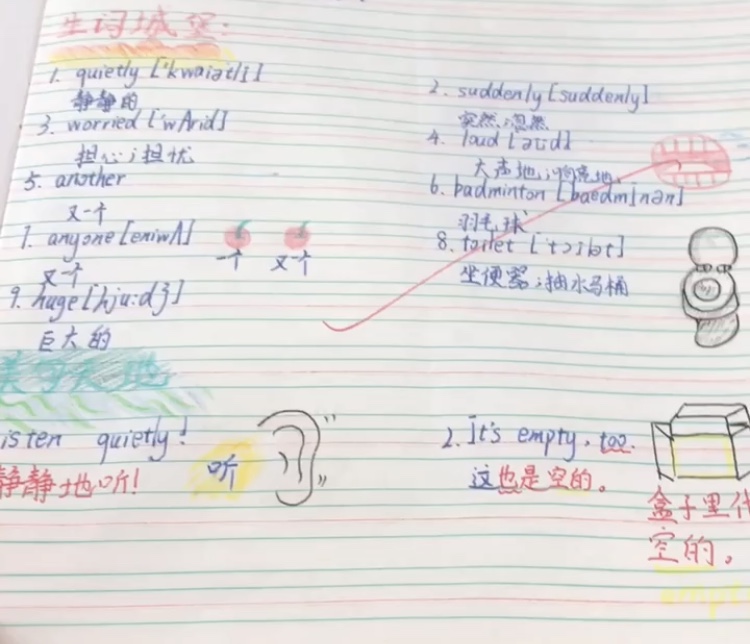 生词城堡:
1. quietly ['kwaiətli]
静静的
2. suddenly [suddenly]
突然;忽然
3. worried ['wʌrid]
担心;担忧
4. loud [aʊd]
大声地;响亮地
5. another
又一个
6. badminton [baedmɪnən]
羽毛球
7. anyone [eniwʌ]
又一个
一个 又一个
8. toilet ['tɔilət]
坐便器;抽水马桶
9. huge [hju:dʒ]
巨大的
美句天地
isten quietly!
静静地听!
听
2. It's empty, too.
这也是空的。
盒子里什
空的。
empt